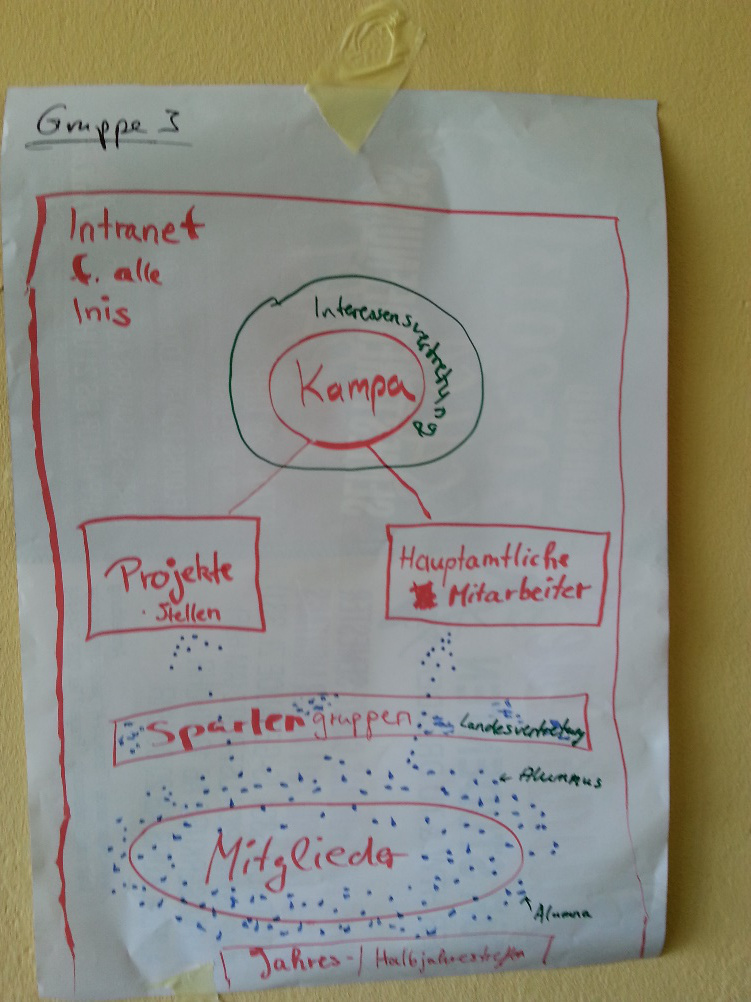 Gruppe 3
Intranet
f. alle
Inis
Interessensvertretung
Kampa
Projekte
· Stellen
Hauptamtliche
Mitarbeiter
Spartengruppen
Landesvertretung
← Alumnus
Mitglieder
Alumna
Jahres-/Halbjahrestreffen